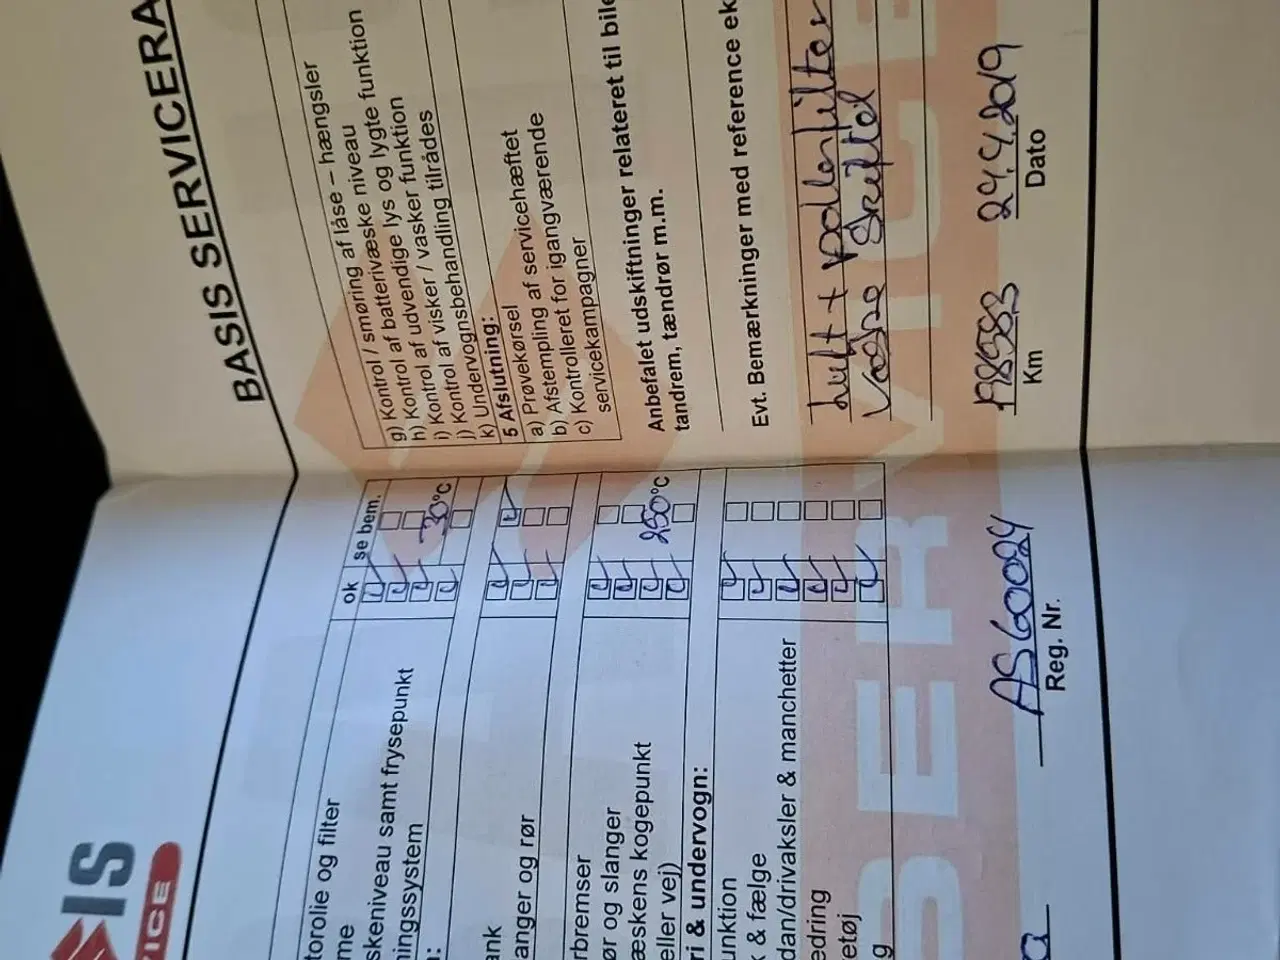 BASIS SERVICERA
IS
ICE
ok
se bem.
torolie og filter
me
skeniveau samt frysepunkt
-30°C
ningssystem
ank
anger og rør
rbremser
ør og slanger
æskens kogepunkt
250°C
eller vej)
ri & undervogn:
unktion
& fælge
dan/drivaksler & manchetter
edring
retøj
g
g) Kontrol / smøring af låse – hængsler
h) Kontrol af batterivæske niveau
i) Kontrol af udvendige lys og lygte funktion
j) Kontrol af visker / vasker funktion
k) Undervognsbehandling tilrådes
5 Afslutning:
a) Prøvekørsel
b) Afstempling af servicehæftet
c) Kontrolleret for igangværende
servicekampagner
Anbefalet udskiftninger relateret til bile
tandrem, tændrør m.m.
Evt. Bemærkninger med reference ek
Luft + pollenfilter
væske skiftet
SERVICE
AS60024
Reg. Nr.
Km
29.4.2019
Dato